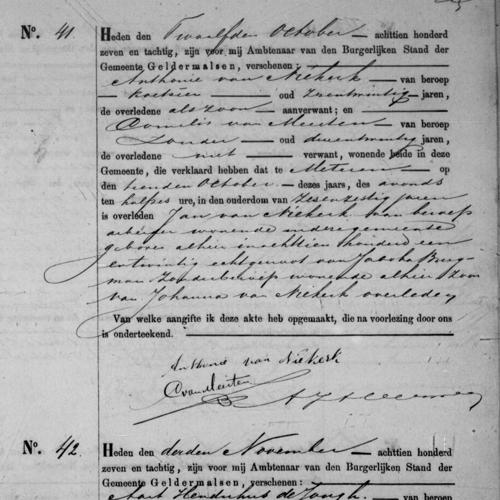 No. 41. Heden den Twaalfden October achttien honderd
zeven en tachtig, zijn voor mij Ambtenaar van den Burgerlijken Stand der
Gemeente Geldermalsen, verschenen:
Anthonie van Niekerk van beroep
koetsier oud zesentwintig jaren,
de overledene als zoon aanverwant; en
Cornelis van Meuten van beroep
zonder oud drieentwintig jaren,
de overledene niet verwant, wonende beide in deze
Gemeente, die verklaard hebben dat te Meteren op
den tienden October dezes jaars, des avonds
ten half zes ure, in den ouderdom van zesenzestig jaren
is overleden Jan van Niekerk van beroep
arbeider wonende in deze gemeente
geboren alhier in achttien honderd een
en twintig echtgenoot van Jacoba Burg-
man zonder beroep wonende alhier zoon
van Johanna van Niekerk overleden
Van welke aangifte ik deze akte heb opgemaakt, die na voorlezing door ons
is onderteekend.
Anthonie van Niekerk
C van Meuten
No. 42. Heden den derden November achttien honderd
zeven en tachtig, zijn voor mij Ambtenaar van den Burgerlijken Stand der
Gemeente Geldermalsen, verschenen:
Aart Hendrikus de Jongh van beroep